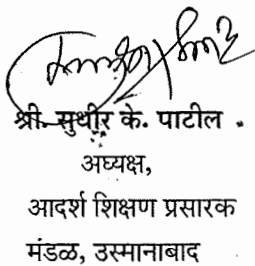 श्री. सुधीर के. पाटील
अध्यक्ष,
आदर्श शिक्षण प्रसारक
मंडळ, उस्मानाबाद